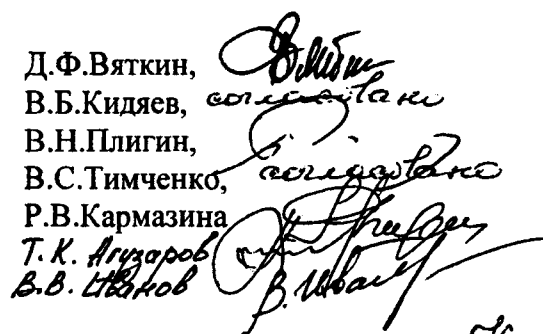 Д.Ф.Вяткин,
В.Б.Кидяев, согласовано
В.Н.Плигин,
В.С.Тимченко, согласовано
Р.В.Кармазина
Т.К. Агузаров
В.В. Иванов